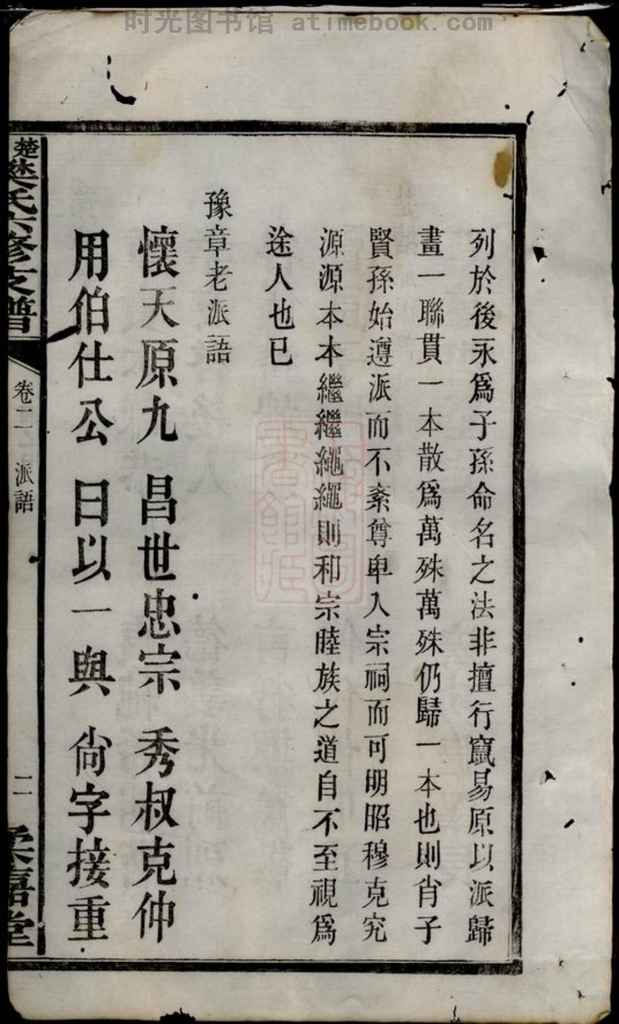 时光图书馆 atimebook.com
列於後永爲子孫命名之法非擅行竄易原以派歸
畫一聯貫一本散爲萬殊萬殊仍歸一本也則肖子
賢孫始遵派而不紊尊卑入宗祠而可明昭穆克究
源源本本繼繼繩繩則和宗睦族之道自不至視爲
途人也已
豫章老派語
懷天原九 昌世忠宗 秀叔克仲
用伯仕公 曰以一與 尙字接重
楚樊氏六修支譜 卷二 派語 二 嘉堂